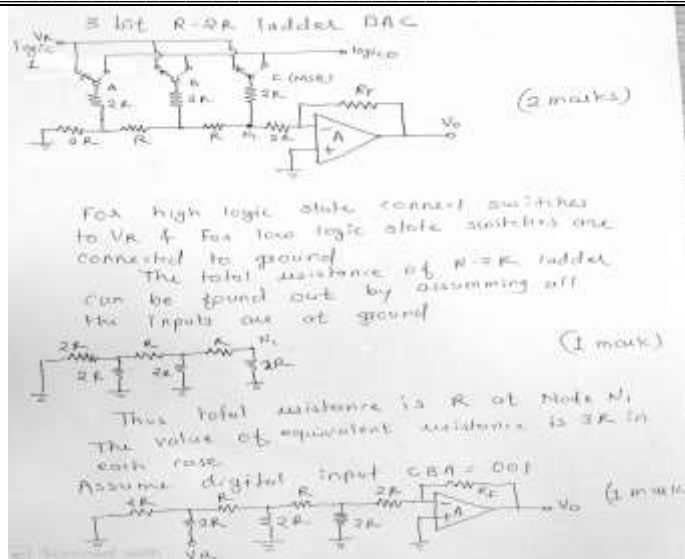 3 bit R-2R ladder DAC
VR
logic 1
logic 0
A
B
C (MSB)
2R
2R
2R
RF
(2 marks)
2R
R
R
N1
2R
A
Vo
For high logic state connect switches
to VR & For low logic state switches are
connected to ground
The total resistance of R-2R ladder
can be found out by assumming all
the inputs are at ground
2R
R
R
N1
2R
2R
2R
(1 mark)
Thus total resistance is R at Node N1
The value of equivalent resistance is 3R in
each case
Assume digital input CBA = 001
2R
R
R
2R
RF
2R
2R
2R
A
Vo
(1 mark
VR